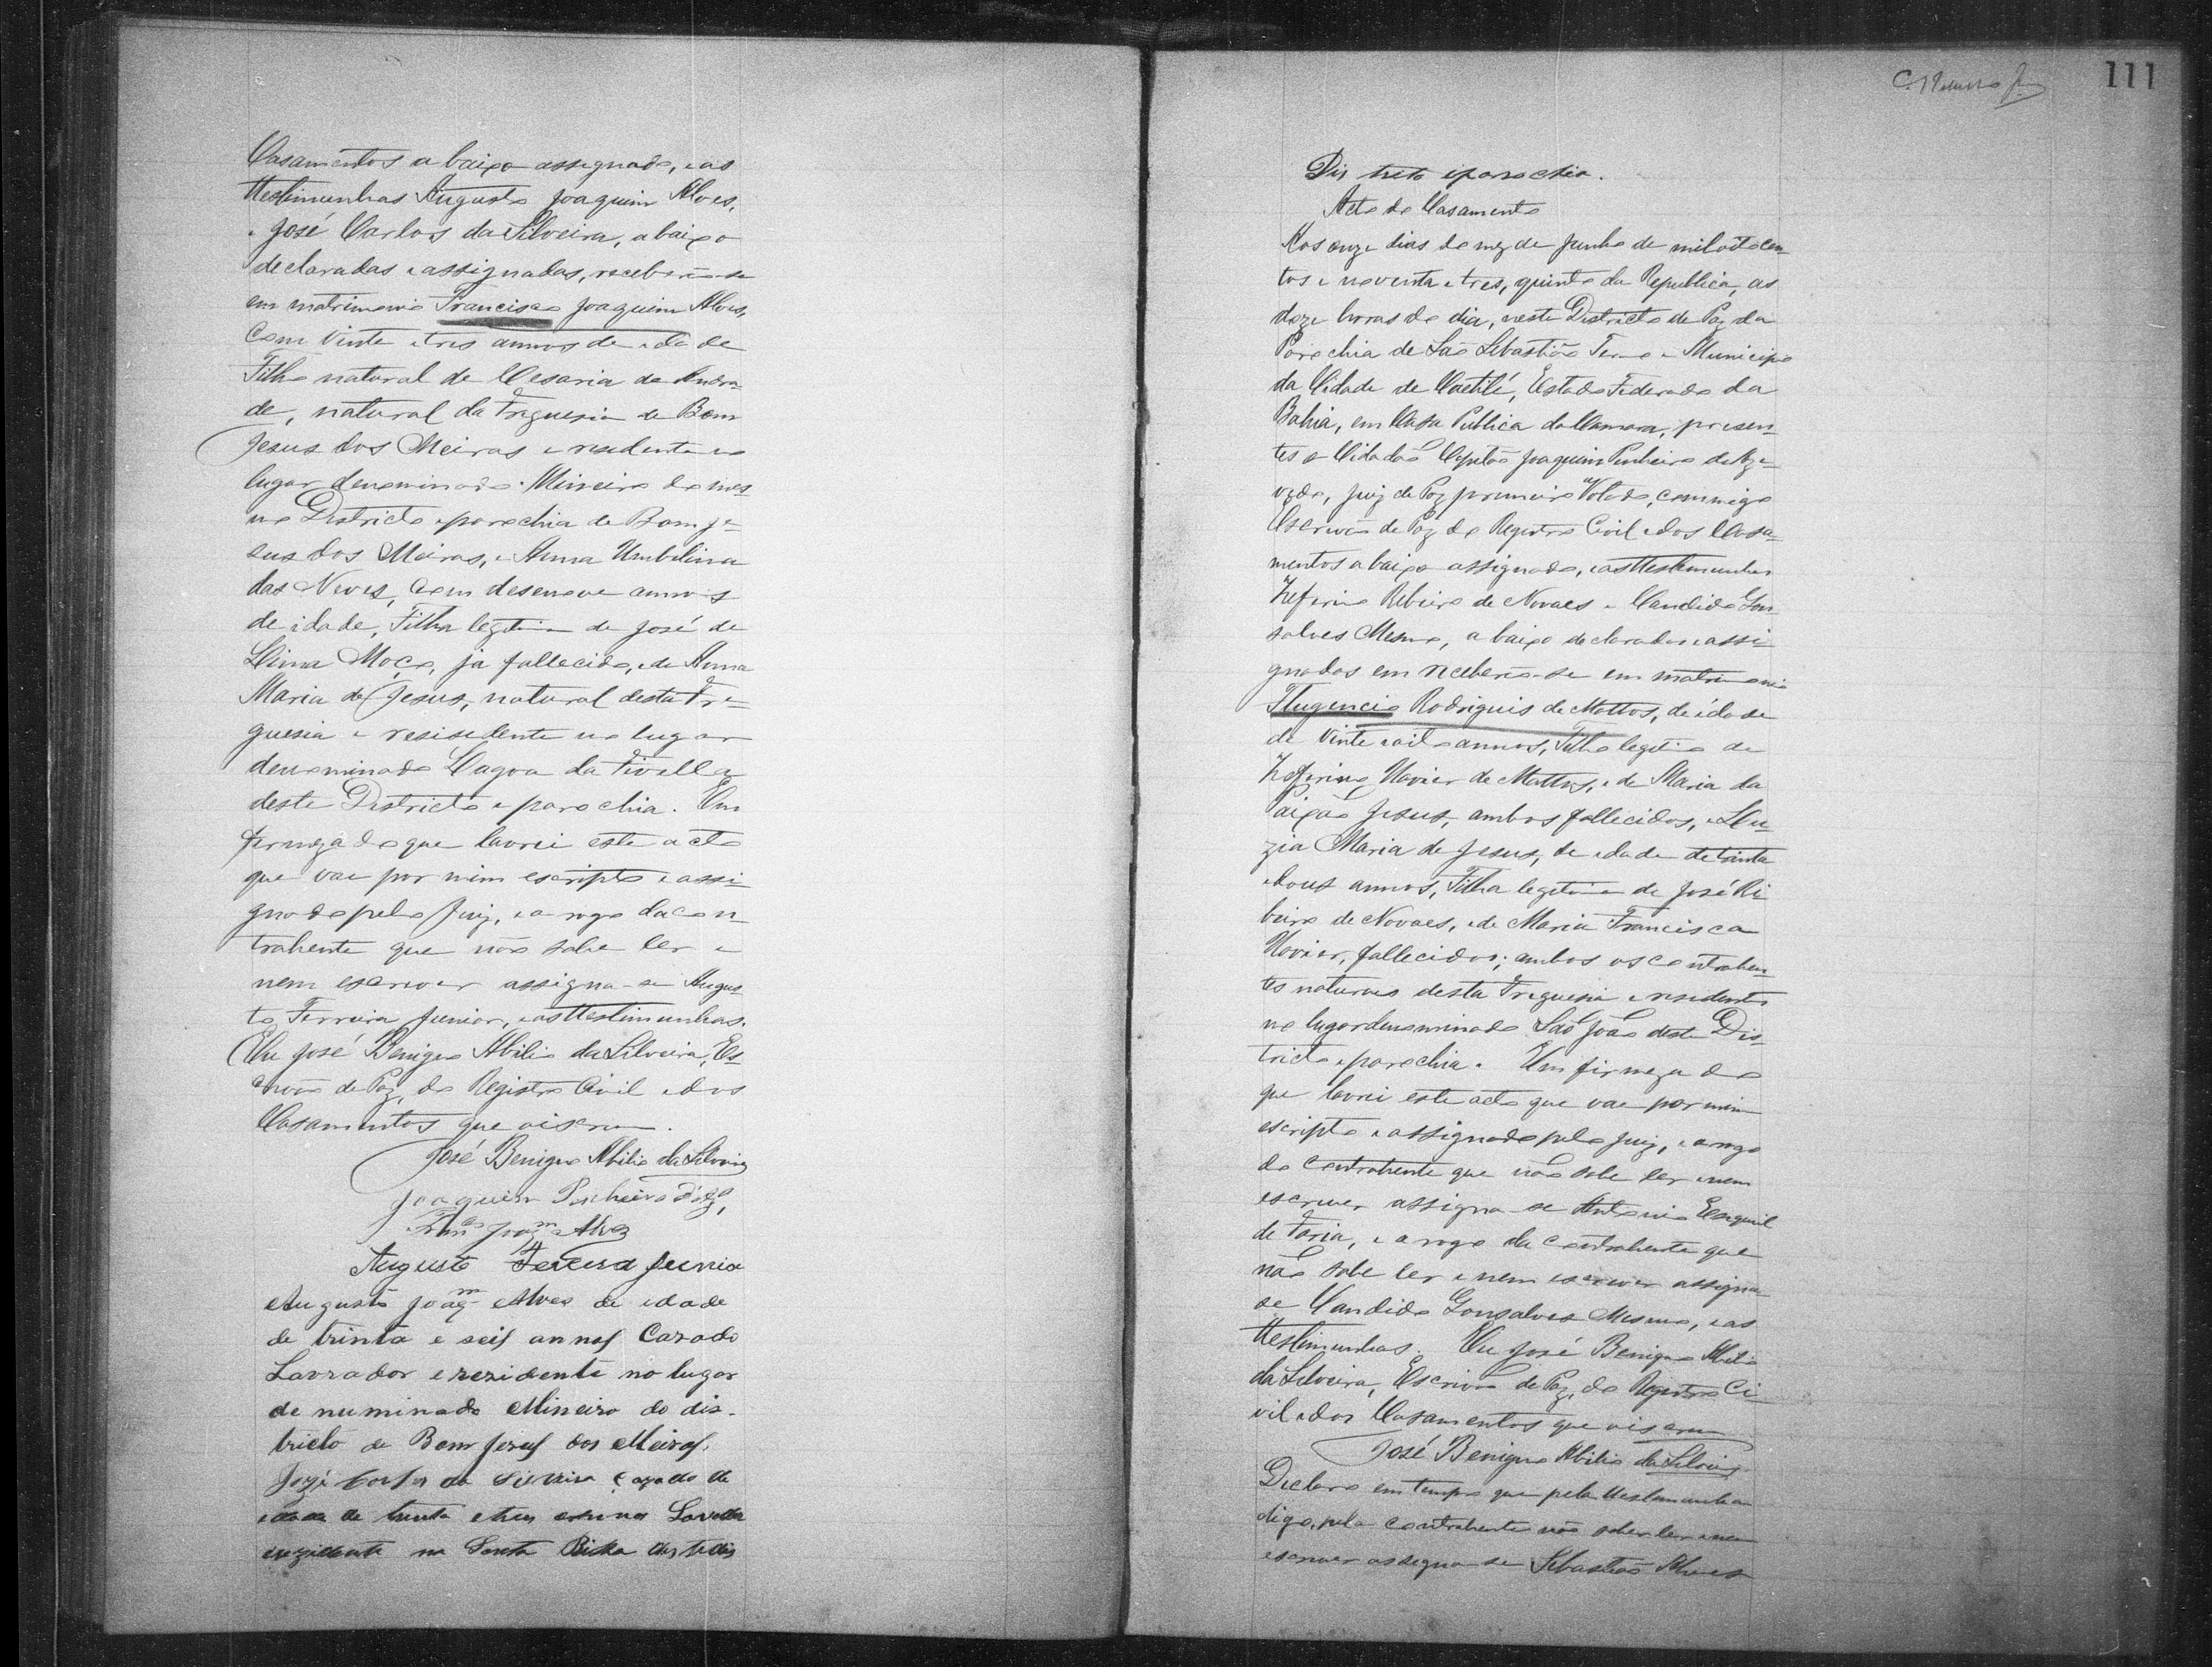 Casamentos abaixo assignado, e as
ttestimunhas Augusto Joaquim Alves,
e José Carlos da Silveira, abaixo
declaradas e assignadas, receberão-se
em matrimonio Francisco Joaquim Alves,
com vinte e tres annos de idade
Filho natural de Cesaria de Andra-
de, natural da Freguesia de Bom
Jesus dos Meiras e residente no
lugar denominado Mineiro do mes-
mo Districto e parochia de Bom Je-
sus dos Meiras, e Anna Umbilina
das Neves, com desenove annos
de idade, Filha legitima de José de
Lima Moço, ja fallecido, e de Anna
Maria de Jesus, natural desta Fre-
guesia e resisedente no lugar
denominado Lagoa da Fivella
deste Districto e parochia. Em
firmeza do que lavrei este acto
que vae por mim escripto e assi-
gnado pelo Juiz, e a rogo da con-
trahente que não sabe ler e
nem escrever assigna-se Augus-
to Ferreira Junior, e as ttestimunhas.
Eu José Benigno Abilio da Silveira, Es-
crivão de Paz, do Registro Civil e dos
Casamentos que oiscrevi.
José Benigno Abilio da Silveira
Joaquim Pinheiro d'Azº
Franco Joaqm Alves
Augusto Fereira Junior
Augusto Joaqm Alves de idade
de trinta e seis annos Cazado
Lavrador e rezidente no lugar
denuminado Mineiro do dis-
tricto de Bom Jezus dos Meiras.
Jozé Carlos da Silveira Cazado de
idade de trinta e tres annos Lavrador
e rezidente na Santa Rita deste dis
111
Districto e parochia.
Acto de Casamento
Aos onze dias do mez de Junho de mil oitocen-
tos e noventa e tres, quinto da Republica, as
doze horas do dia, neste Districto de Paz da
Parochia de São Sebastião Termo e Municipio
da Cidade de Caetité, Estado Federado da
Bahia, em Casa Publica da Camara, presen-
tes o Cidadão Capitão Joaquim Pinheiro de Aze-
vedo, Juiz de Paz primeiro Votado, commigo
Escrivão de Paz do Registro Civil e dos Casa-
mentos abaixo assignado, e as ttestimunhas
Zeferino Ribeiro de Novaes e Candido Gon-
salves Mesmo, abaixo declaradas e assi-
gnadas em receberão-se em matrimonio
Flugencio Rodriguis de Mattos, de idade
de vinte e oito annos, Filho legitimo de
Zefferino Xavier de Mattos, e de Maria da
Paixão Jesus, ambos fallecidos, e Lu-
zia Maria de Jesus, de idade de trinta
e dous annos, Filha legitima de José Ri-
beiro de Novaes, e de Maria Francisca
Xavier, fallecidos; ambos os contrahen-
tes naturaes desta Freguesia e residentes
no lugar denominado São João deste Dis-
tricto e parochia. Em firmeza do
que lavrei este acto que vae por mim
escripto e assignado pelo Juiz, e a rogo
do contrahente que não sabe ler e nem
escrever assigna-se Antonio Esequiel
de Faria, e a rogo da contrahente que
não sabe ler e nem escrever assigna-
se Candido Gonsalves Mesmo, e as
ttestimunhas. Eu José Benigno Abilio
da Silveira, Escrivão de Paz, do Registro Ci-
vil e dos Casamentos que oiscrevi
José Benigno Abilio da Silveira
Declaro em tempo que pela ttestimunha
digo, pela contrahente não saber ler e nem
escrever assigna-se Sebastião Alves